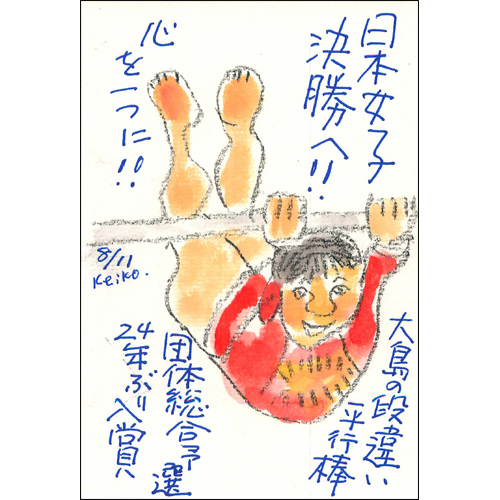 日本女子
決勝へ!!
心を一つに!!
8/11
Keiko.
大島の段違い
平行棒
団体総合予選
24年ぶり入賞へ